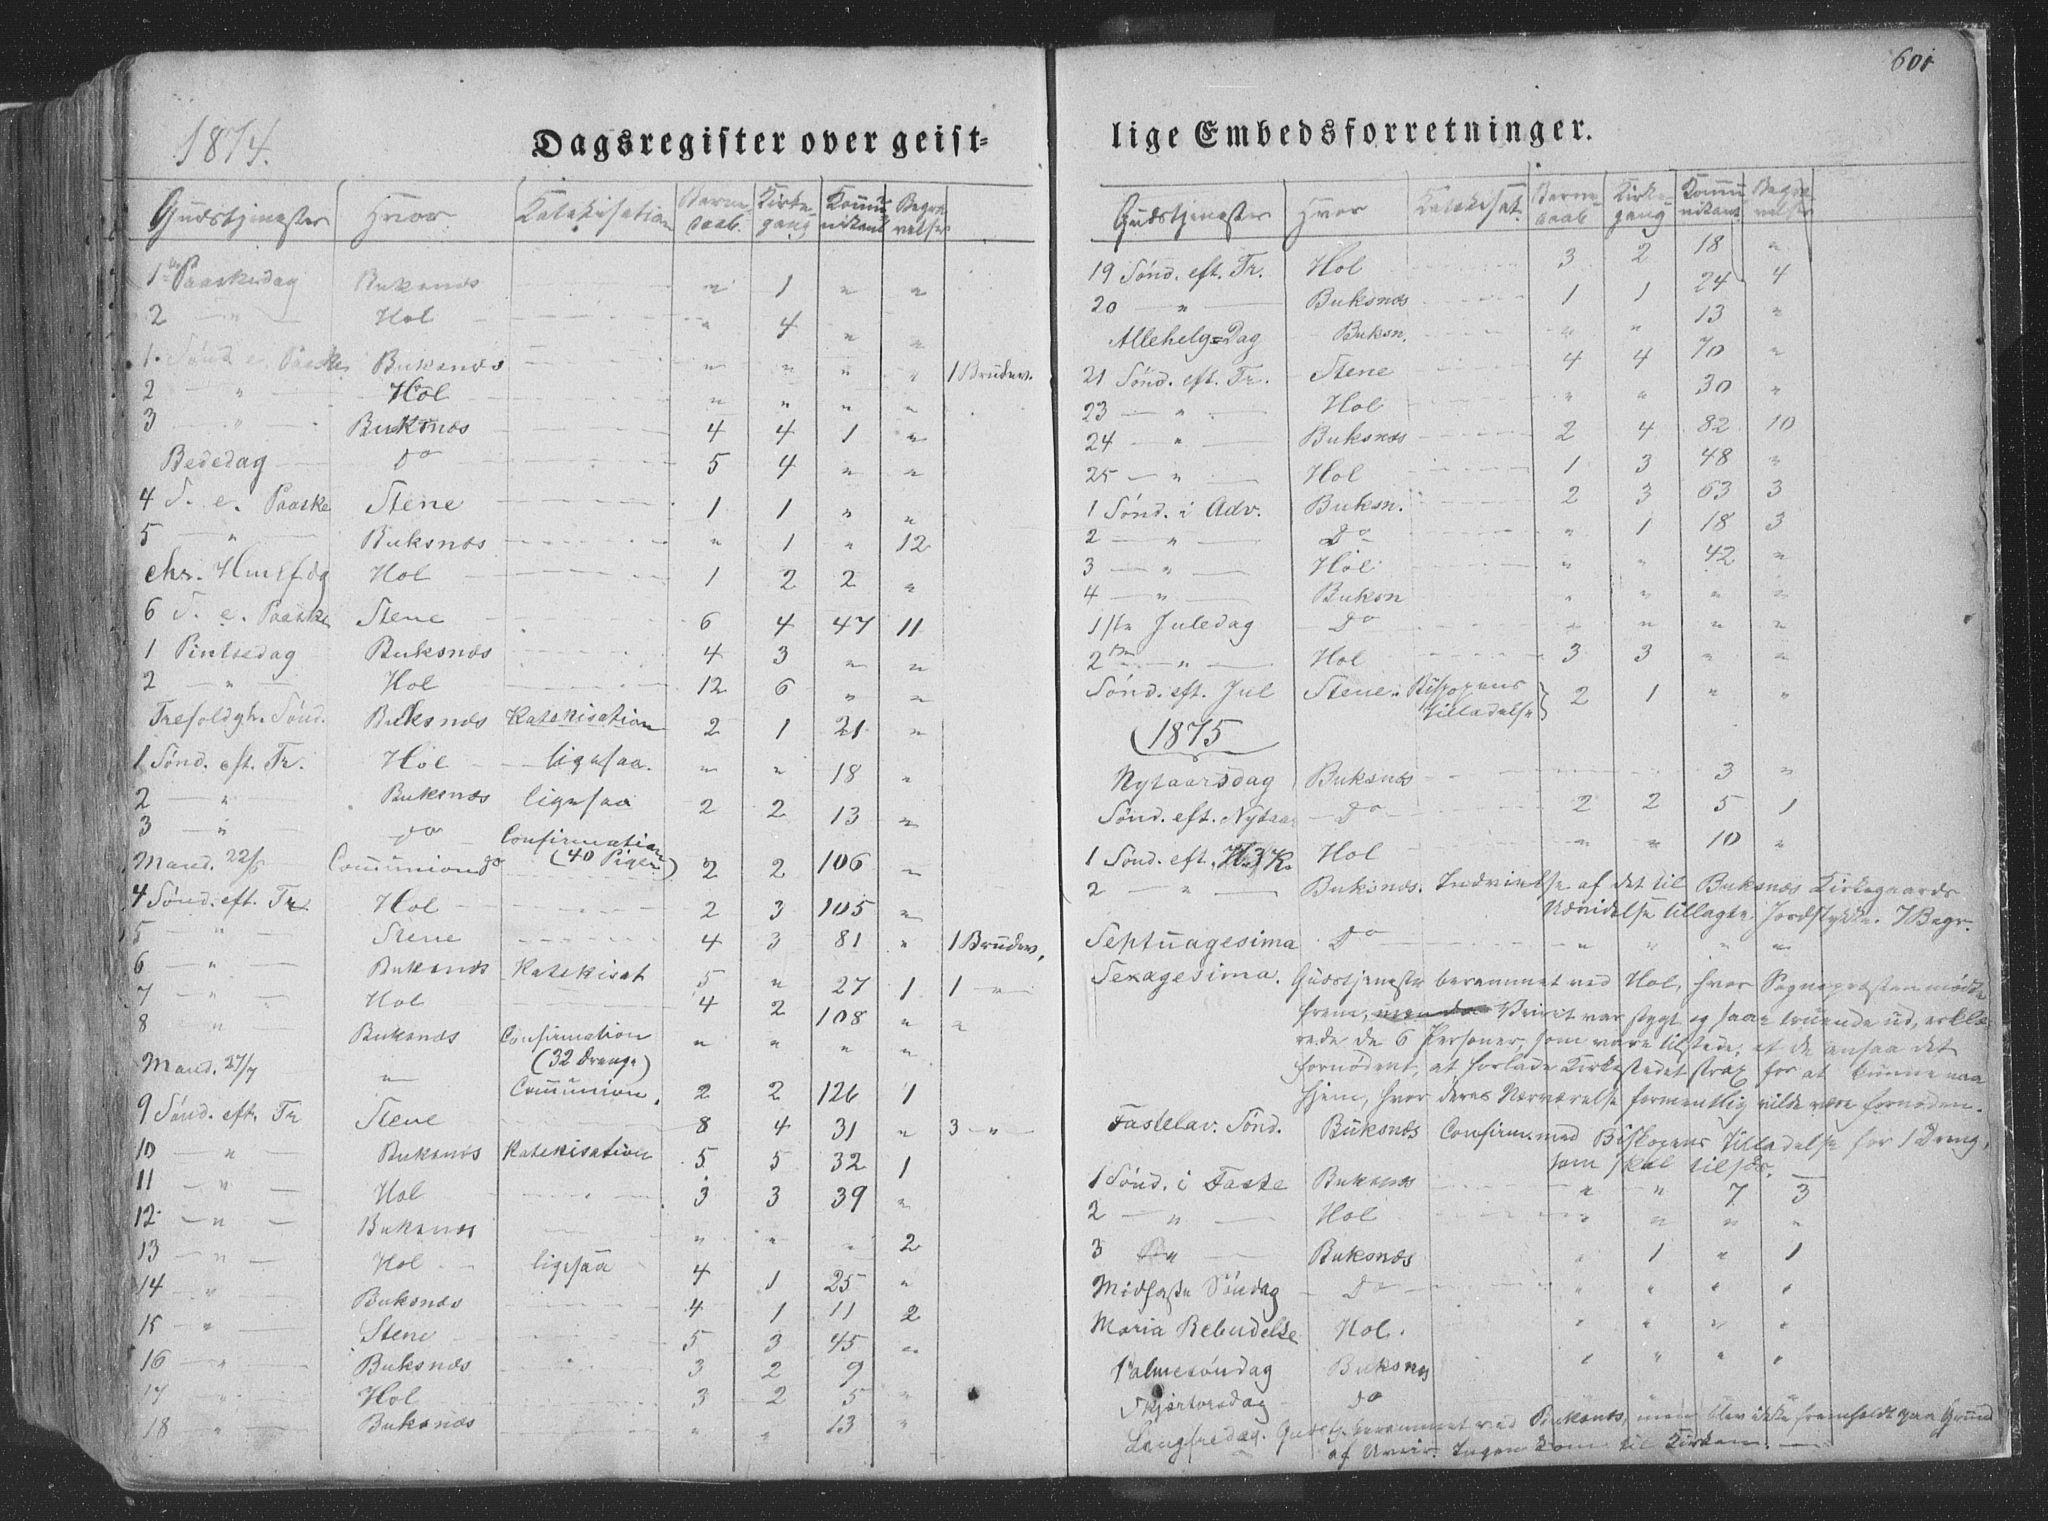 601
1874.
Dagsregister over geist=
lige Embedsforretninger.
Gudstjenester Hvor Katekisation Barne daab. Kirke gang Kommu nikant Begra velser
1ste Paaskedag Buksnæs " 1 " "
2 — " — Hol " 4 " "
1. Sønd. e. Paaske Buksnæs " " " " 1 Brudev.
2 — " — Hol " " " "
3 — " — Buksnæs 4 4 1 "
Bededag Do 5 4 " "
4 S. e. Paaske Stene 1 1 " "
5 — " — Buksnæs " 1 " 12
Chr. Himlfdg Hol 1 2 2 "
6 S. e. Paaske Stene 6 4 47 11
1 Pintsedag Buksnæs 4 3 " "
2 — " — Hol 12 6 " "
Trefoldgh. Sønd. Buksnæs Katekisation 2 1 21 "
1 Sønd. eft. Tr. Hol ligesaa. " " 18 "
2 — " — Buksnæs ligesaa 2 2 13 "
3 — " — Do Confirmation (40 Piger)
Mand. 22/6 Communion Do 2 2 106 "
4 Sønd. eft. Tr. Hol 2 3 105 "
5 — " — Stene 4 3 81 " 1 Brudev.
6 — " — Buksnæs Katekisat 5 " 27 1 1 — " —
7 — " — Hol 4 2 108 " "
8 " Buksnæs Confirmation (32 Drenge) " " " "
Mand. 27/7 " Communion. 2 2 126 1
9 Sønd. eft. Tr Stene 8 4 31 " 3 — " —
10 — " — Buksnæs Katekisation 5 5 32 1
11 — " — Hol 3 3 39 "
12 — " — Buksnæs " " " 2
13 — " — Hol ligesaa 4 1 25 "
14 — " — Buksnæs 4 1 11 2
15 — " — Stene 5 3 45 "
16 — " — Buksnæs 3 2 9
17 — " — Hol 3 2 5 "
18 — " — Buksnæs " " 13 "
Gudstjenester Hvor Katekisat. Barne daab. Kirke gang Kommu nikant Begra velser
19 Sønd. eft. Tr. Hol 3 2 18 "
20 — " — Buksnæs 1 1 24 4
Allehelg=Dag Buksn. " " 13 "
21 Sønd. eft. Tr. Stene 4 4 70 "
23 — " — Hol " " 30 "
24 — " — Buksnæs 2 4 82 10
25 — " — Hol 1 3 48 "
1 Sønd. i Adv. Buksn. 2 3 63 3
2 — " — Do " 1 18 3
3 — " — Hol " " 42 "
4 — " — Buksn " " " "
1ste Juledag Do " " " "
2den — " — Hol 3 3 " "
Sønd. eft. Jul Stene. Biskopens Tilladelse } 2 1 " "
1875
Nytaarsdag Buksnæs 3 "
Sønd. eft. Nytaar Do 2 2 5 1
1 Sønd. eft. H3K. Hol " " 10 "
2 — " — Buksnæs. Indvielse af det til Buksnæs Kirkegaards
Udvidelse tillagte Jordstykke. 7 Begr.
Septuagesima Do " " " "
Sexagesima. Gudstjeneste berammet ved Hol, hvor Sognepræsten mødte
frem, men da Veiret var stygt og saae truende ud, erklæ
rede de 6 Personer, som vare tilstede, at de ansaa det
fornødent, at forlade Kirkestedet strax for at kunne naa
hjem, hvor deres Nærværelse formentlig vilde være fornøden.
Fastelav. Sønd. Buksnæs Confirm. med Biskopens Tilladelse for 1 Dreng,
som skal tilsøs.
1 Sønd. i Faste Buksnæs " " 7 3
2 — " — Hol " " " "
3 " — Buksnæs " 1 " 1
Midfaste Søndag Do " " " "
Maria Bebudelse Hol. " " " "
Palmesøndag Buksnæs " " " "
Skjertorsdag Do
Langfredag. Gudstj. berammet ved Buksnæs, men blev ikke fremholdt paa Grund
af Uveir. Ingen kom til Kirken.